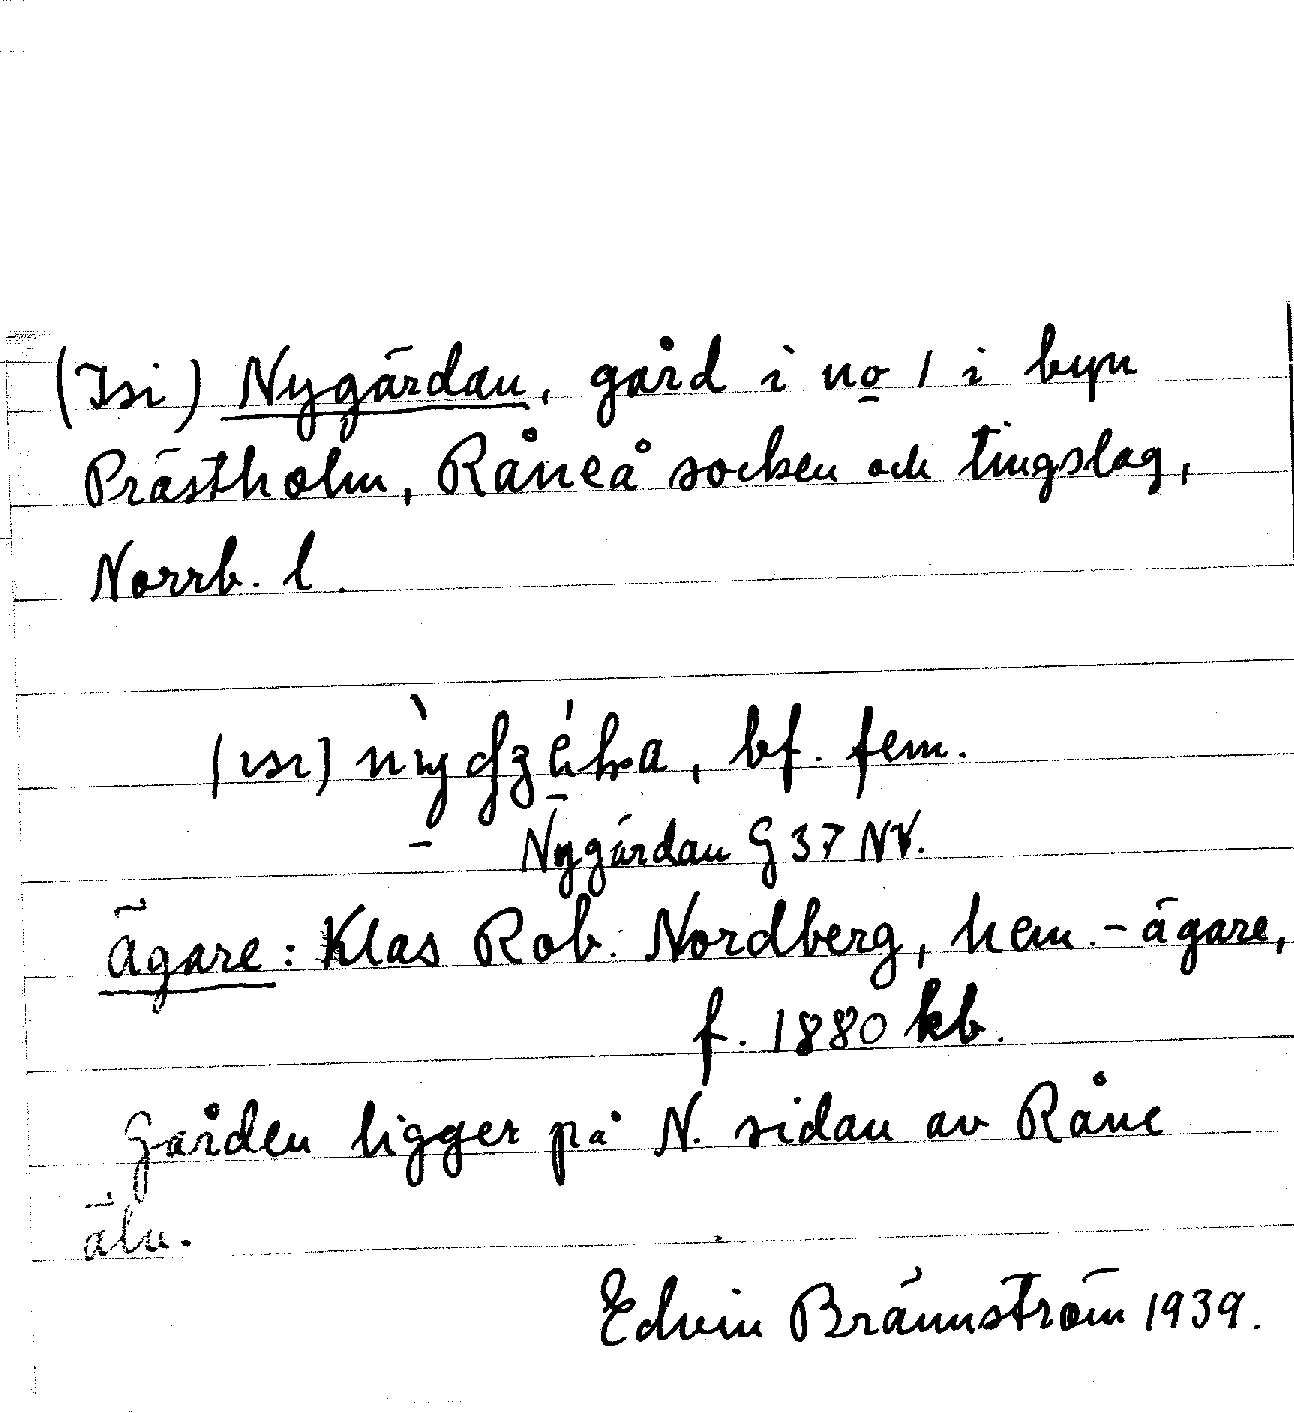 (Isi) Nygärdan, gård i no 1 i byn
Prästholm, Råneå socken och tingslag,
Norrb. l.
(ısı) bf. fem.
Nygärdan G 37 NV.
Ägare: Klas Rob. Nordberg, hem.-ägare,
f. 1880 kb.
Gården ligger på N. sidan av Råne
älv.
Edvin Brännström 1939.